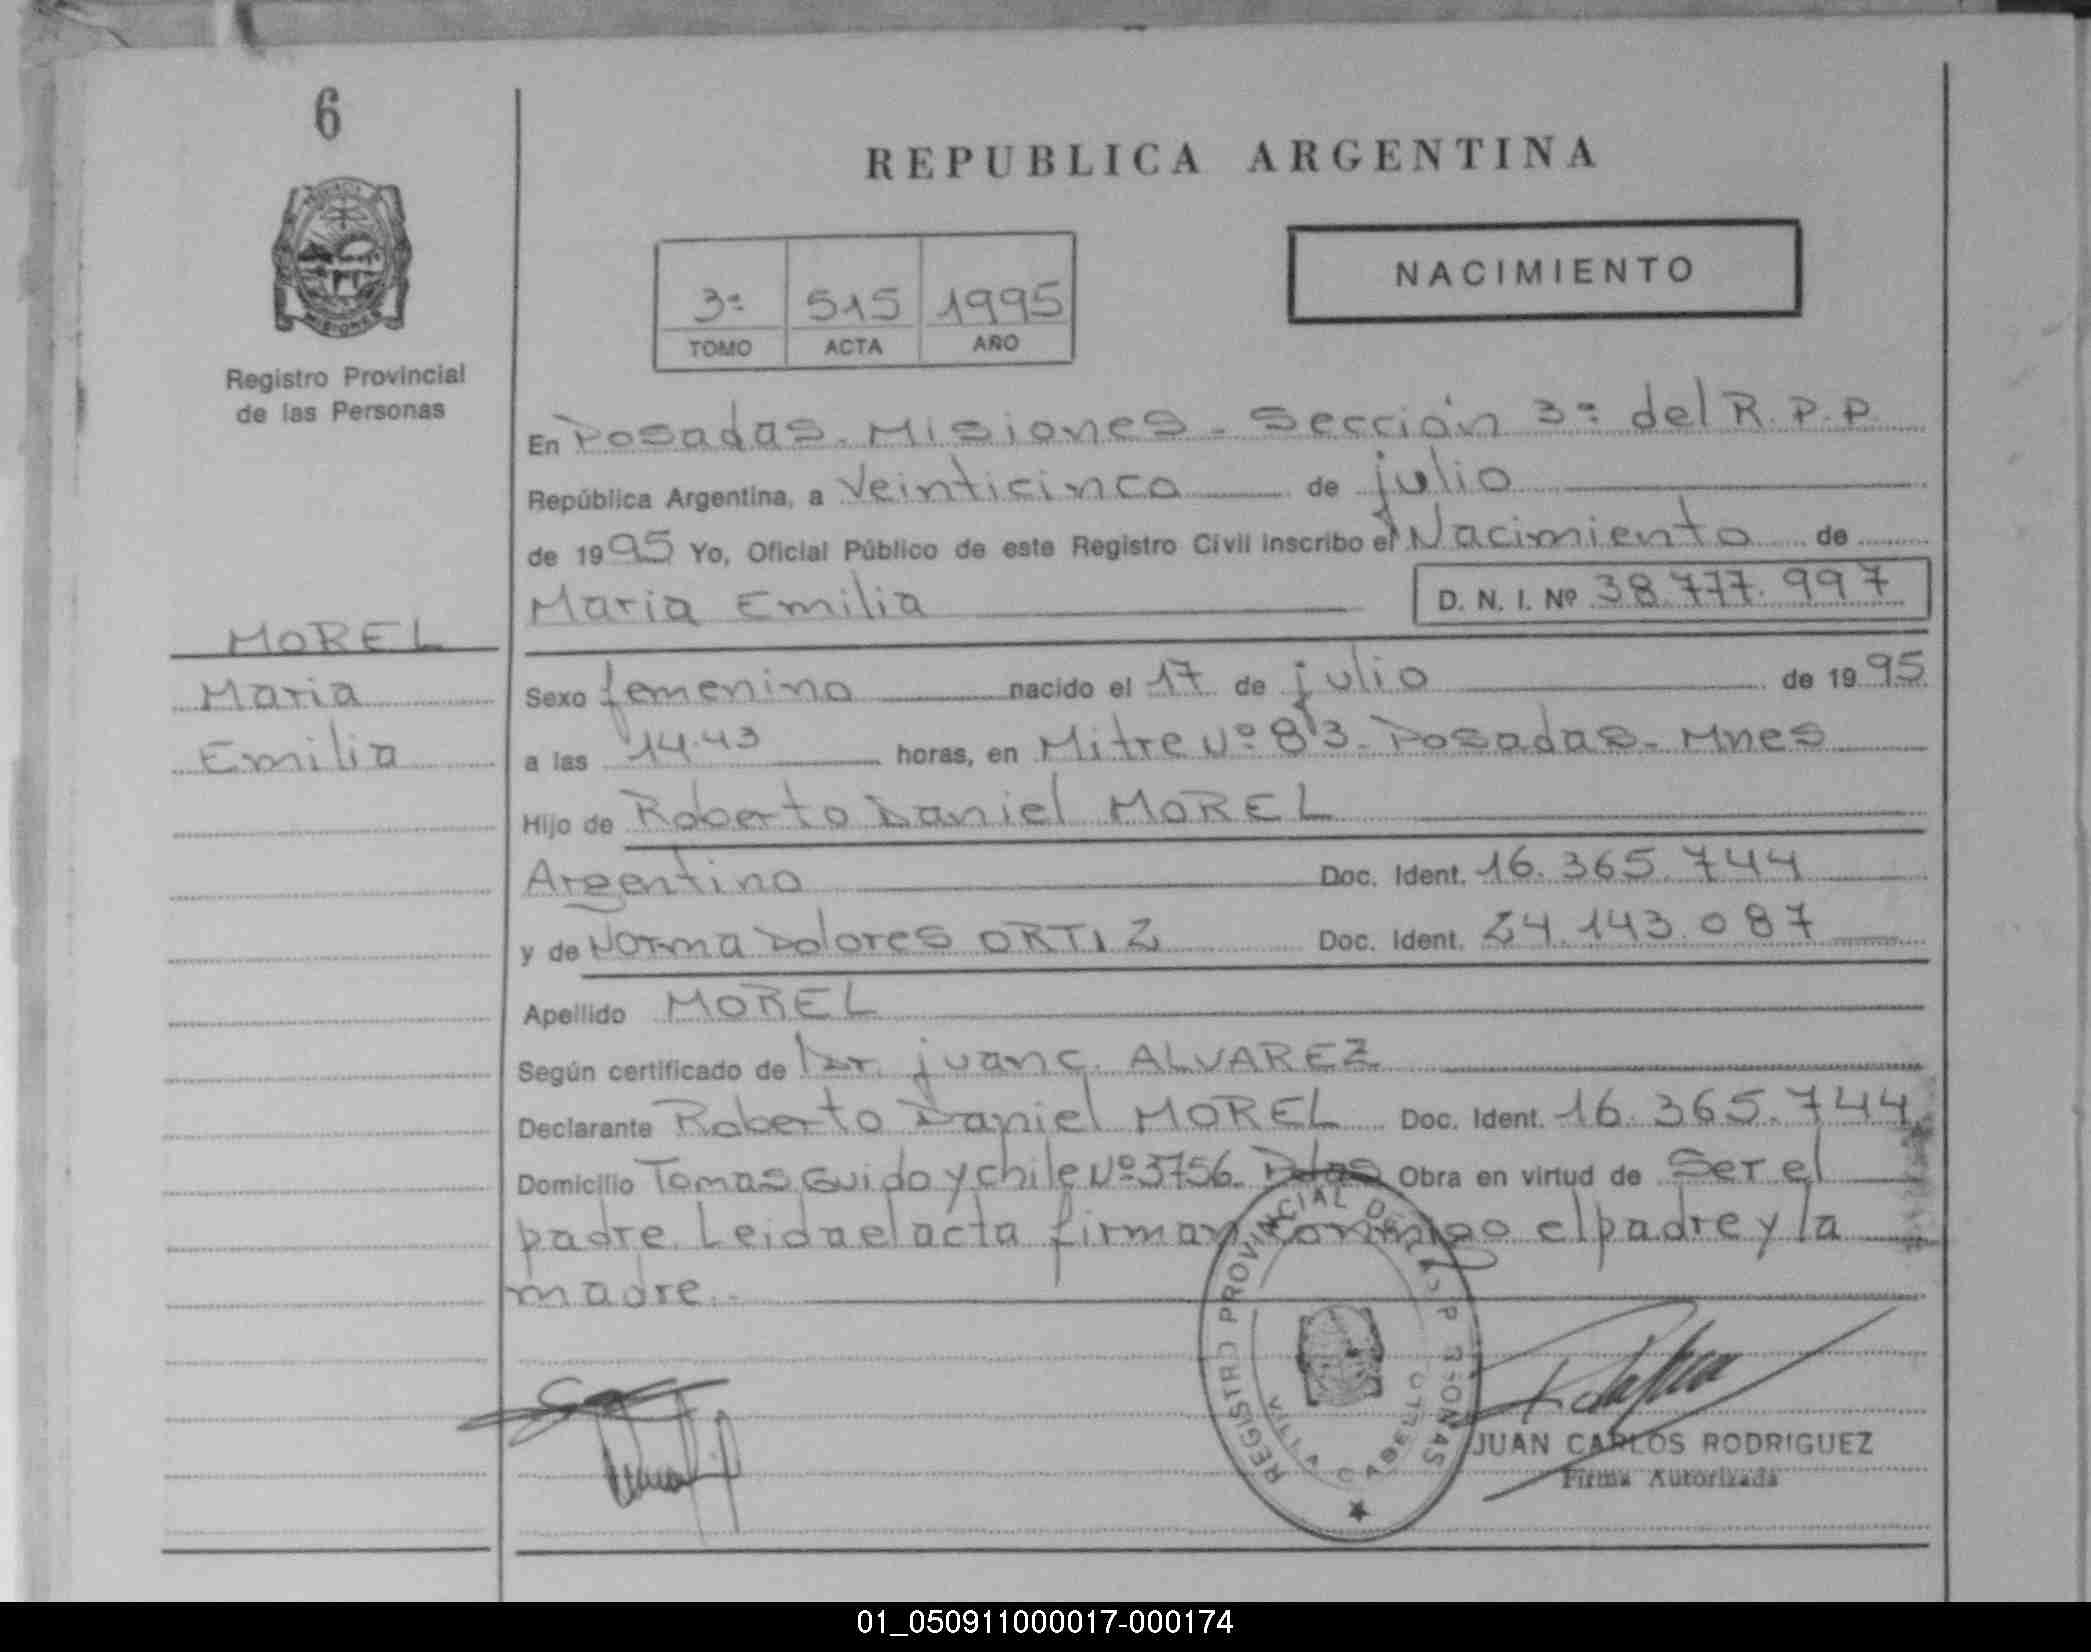 6
REPUBLICA ARGENTINA
NACIMIENTO
3ª 515 1995
TOMO ACTA AÑO
PROVINCIA
MISIONES
Registro Provincial
de las Personas
MOREL
Maria
Emilia
En Posadas - Misiones - Sección 3ª del R.P.P.
República Argentina, a Veinticinco de julio
de 1995 Yo, Oficial Público de este Registro Civil inscribo el Nacimiento de
Maria Emilia D. N. I. Nº 38.777.997
Sexo femenino nacido el 17 de julio de 1995
a las 14.43 horas, en Mitre Nº 83 - Posadas - Mnes
Hijo de Roberto Daniel MOREL
Argentino Doc. Ident. 16.365.744
y de Norma Dolores ORTIZ Doc. Ident. 24.143.087
Apellido MOREL
Según certificado de Dr. juan c. ALVAREZ
Declarante Roberto Daniel MOREL Doc. Ident. 16.365.744
Domicilio Tomas Guido y chile Nº 3756 - Pdas Obra en virtud de Ser el
padre. Leida el acta firman conmigo el padre y la
madre.-
REGISTRO PROVINCIAL DE LAS PERSONAS
VILLA CABELLO
JUAN CARLOS RODRIGUEZ
Firma Autorizada
01_050911000017-000174